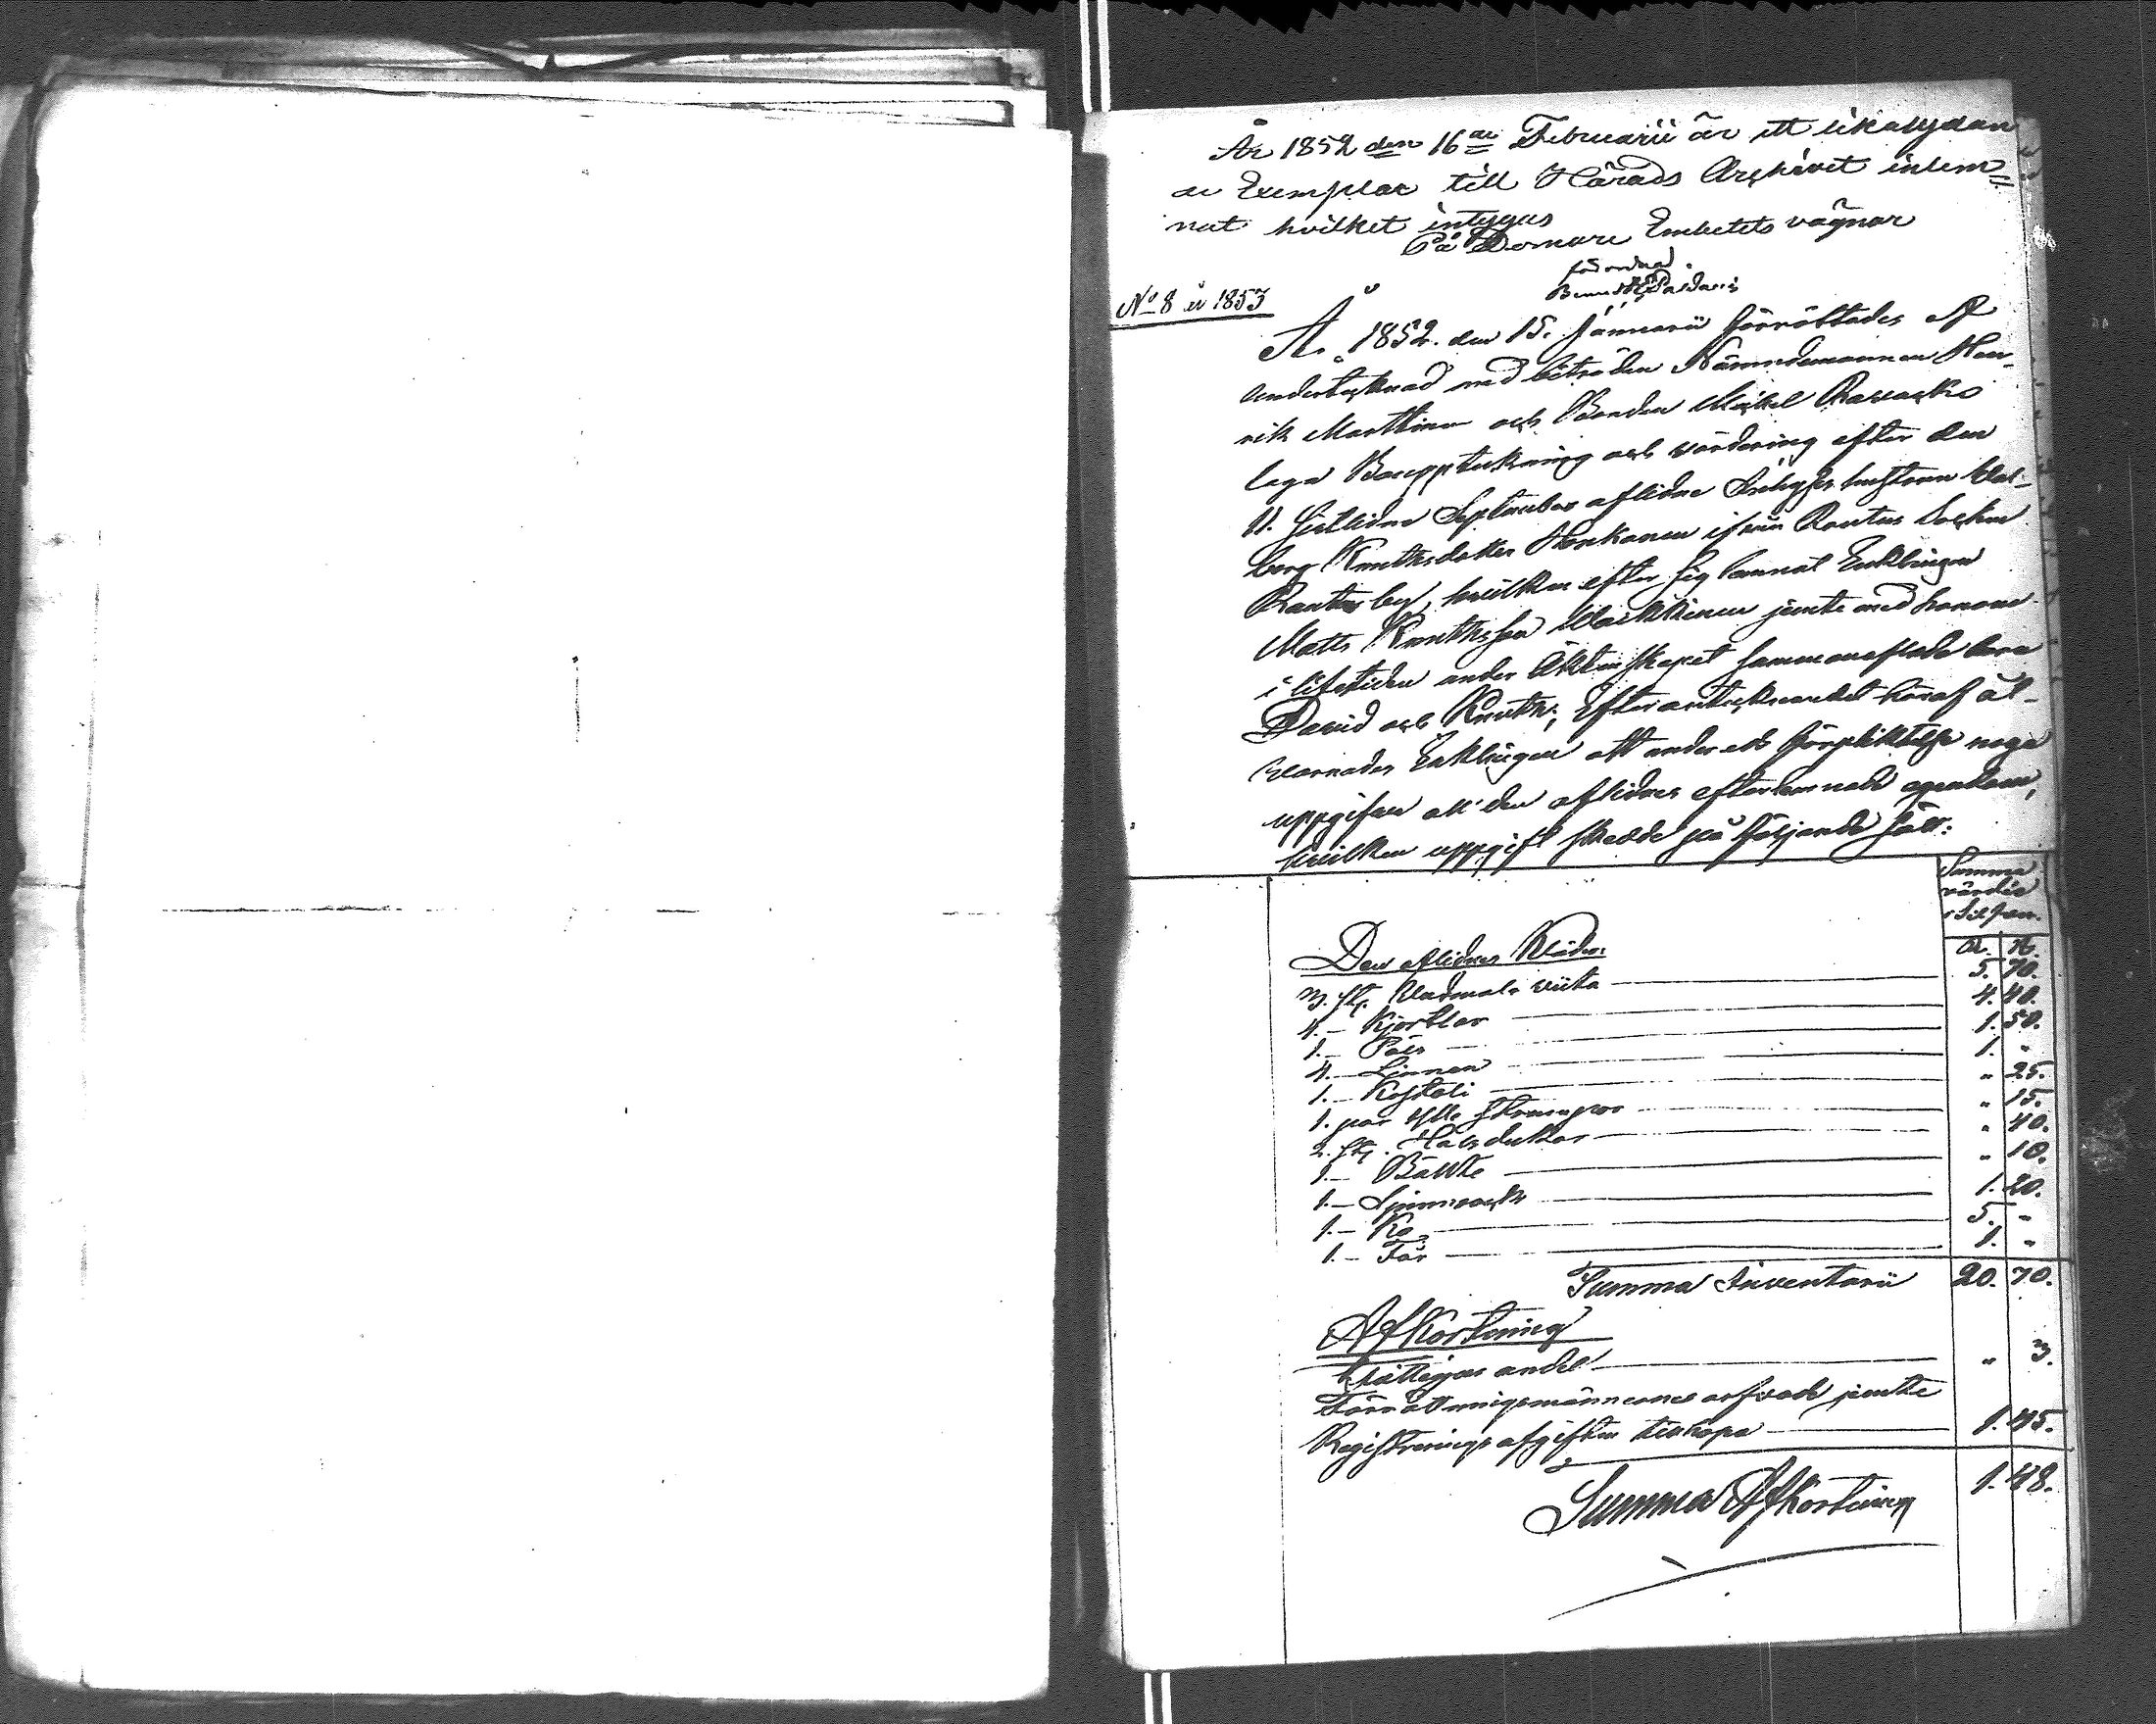 År 1852 den 16de Februarii är ett likalydan
de Exemplar till Härads Archivet inlem=
nat hvilket intygas
På Domare Embetets vägnar
förordnad
No 8 år 1853
År 1852. den 15. Januarii förrättades af
undertecknad med biträden Nämndemannen Hen-
rik Marttinen och Bonden Mickel
laga Bouppteckning och värdering efter den
11. sistlidne September aflidne hustrun Val-
borg Knutsdotter Honkanen ifrån Rautus Socken
Rautus by, hvilken efter sig lemnat Enklingen
Matts Knuthsson jemte med honom
i lifstiden under Äktenskapet sammanaflade barn
David och Knuth; Efter antecknandet häraf åt-
varnades Enklingen att under eds förpliktelse noga
uppgifva all den aflidnes efterlemnade egendom,
hvilken uppgift skedde på följande sätt:
Summa
värde
i Silfver.
R. K.
Den aflidnes Kläder:
3. st. Vadmals viita 5. 70.
4. - Kjortlar 4. 40.
1. - Päls 1. 50.
4. - Linnen 1. "
1. - Kostoli " 25.
1. par Ylle strumpor " 15.
2. st. Halsdukar " 40.
1. - Bälte " 10.
1. - Spinnrock 1. 20.
1. - Ko 5. "
1. - Får 1. "
Summa Inventarii 20. 70.
Afkortning
Fattigas andel " 3.
Förrättningsmännernes arfvode jemte
Registrerings afgiften tillhopa 1. 45.
Summa Afkortning 1. 48.